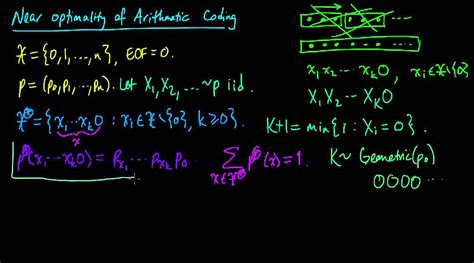 Near optimality of Arithmetic Coding
𝒳 = {0,1,...,n}, EOF = 0.
p = (p₀,p₁,...,pₙ). Let X₁,X₂,... ~ p iid.
𝒳^⊛ = {x₁...xₖ0 : xᵢ∈𝒳\{0}, k≥0}.
x
p^⊛(x₁...xₖ0) = pₓ₁...pₓₖp₀.
∑ p^⊛(x) = 1.
x∈𝒳^⊛
x₁x₂...xₖ0, xᵢ∈𝒳\{0}
X₁X₂...X_K0
K+1 = min{i : Xᵢ=0}.
K ~ Geometric(p₀)
0000...